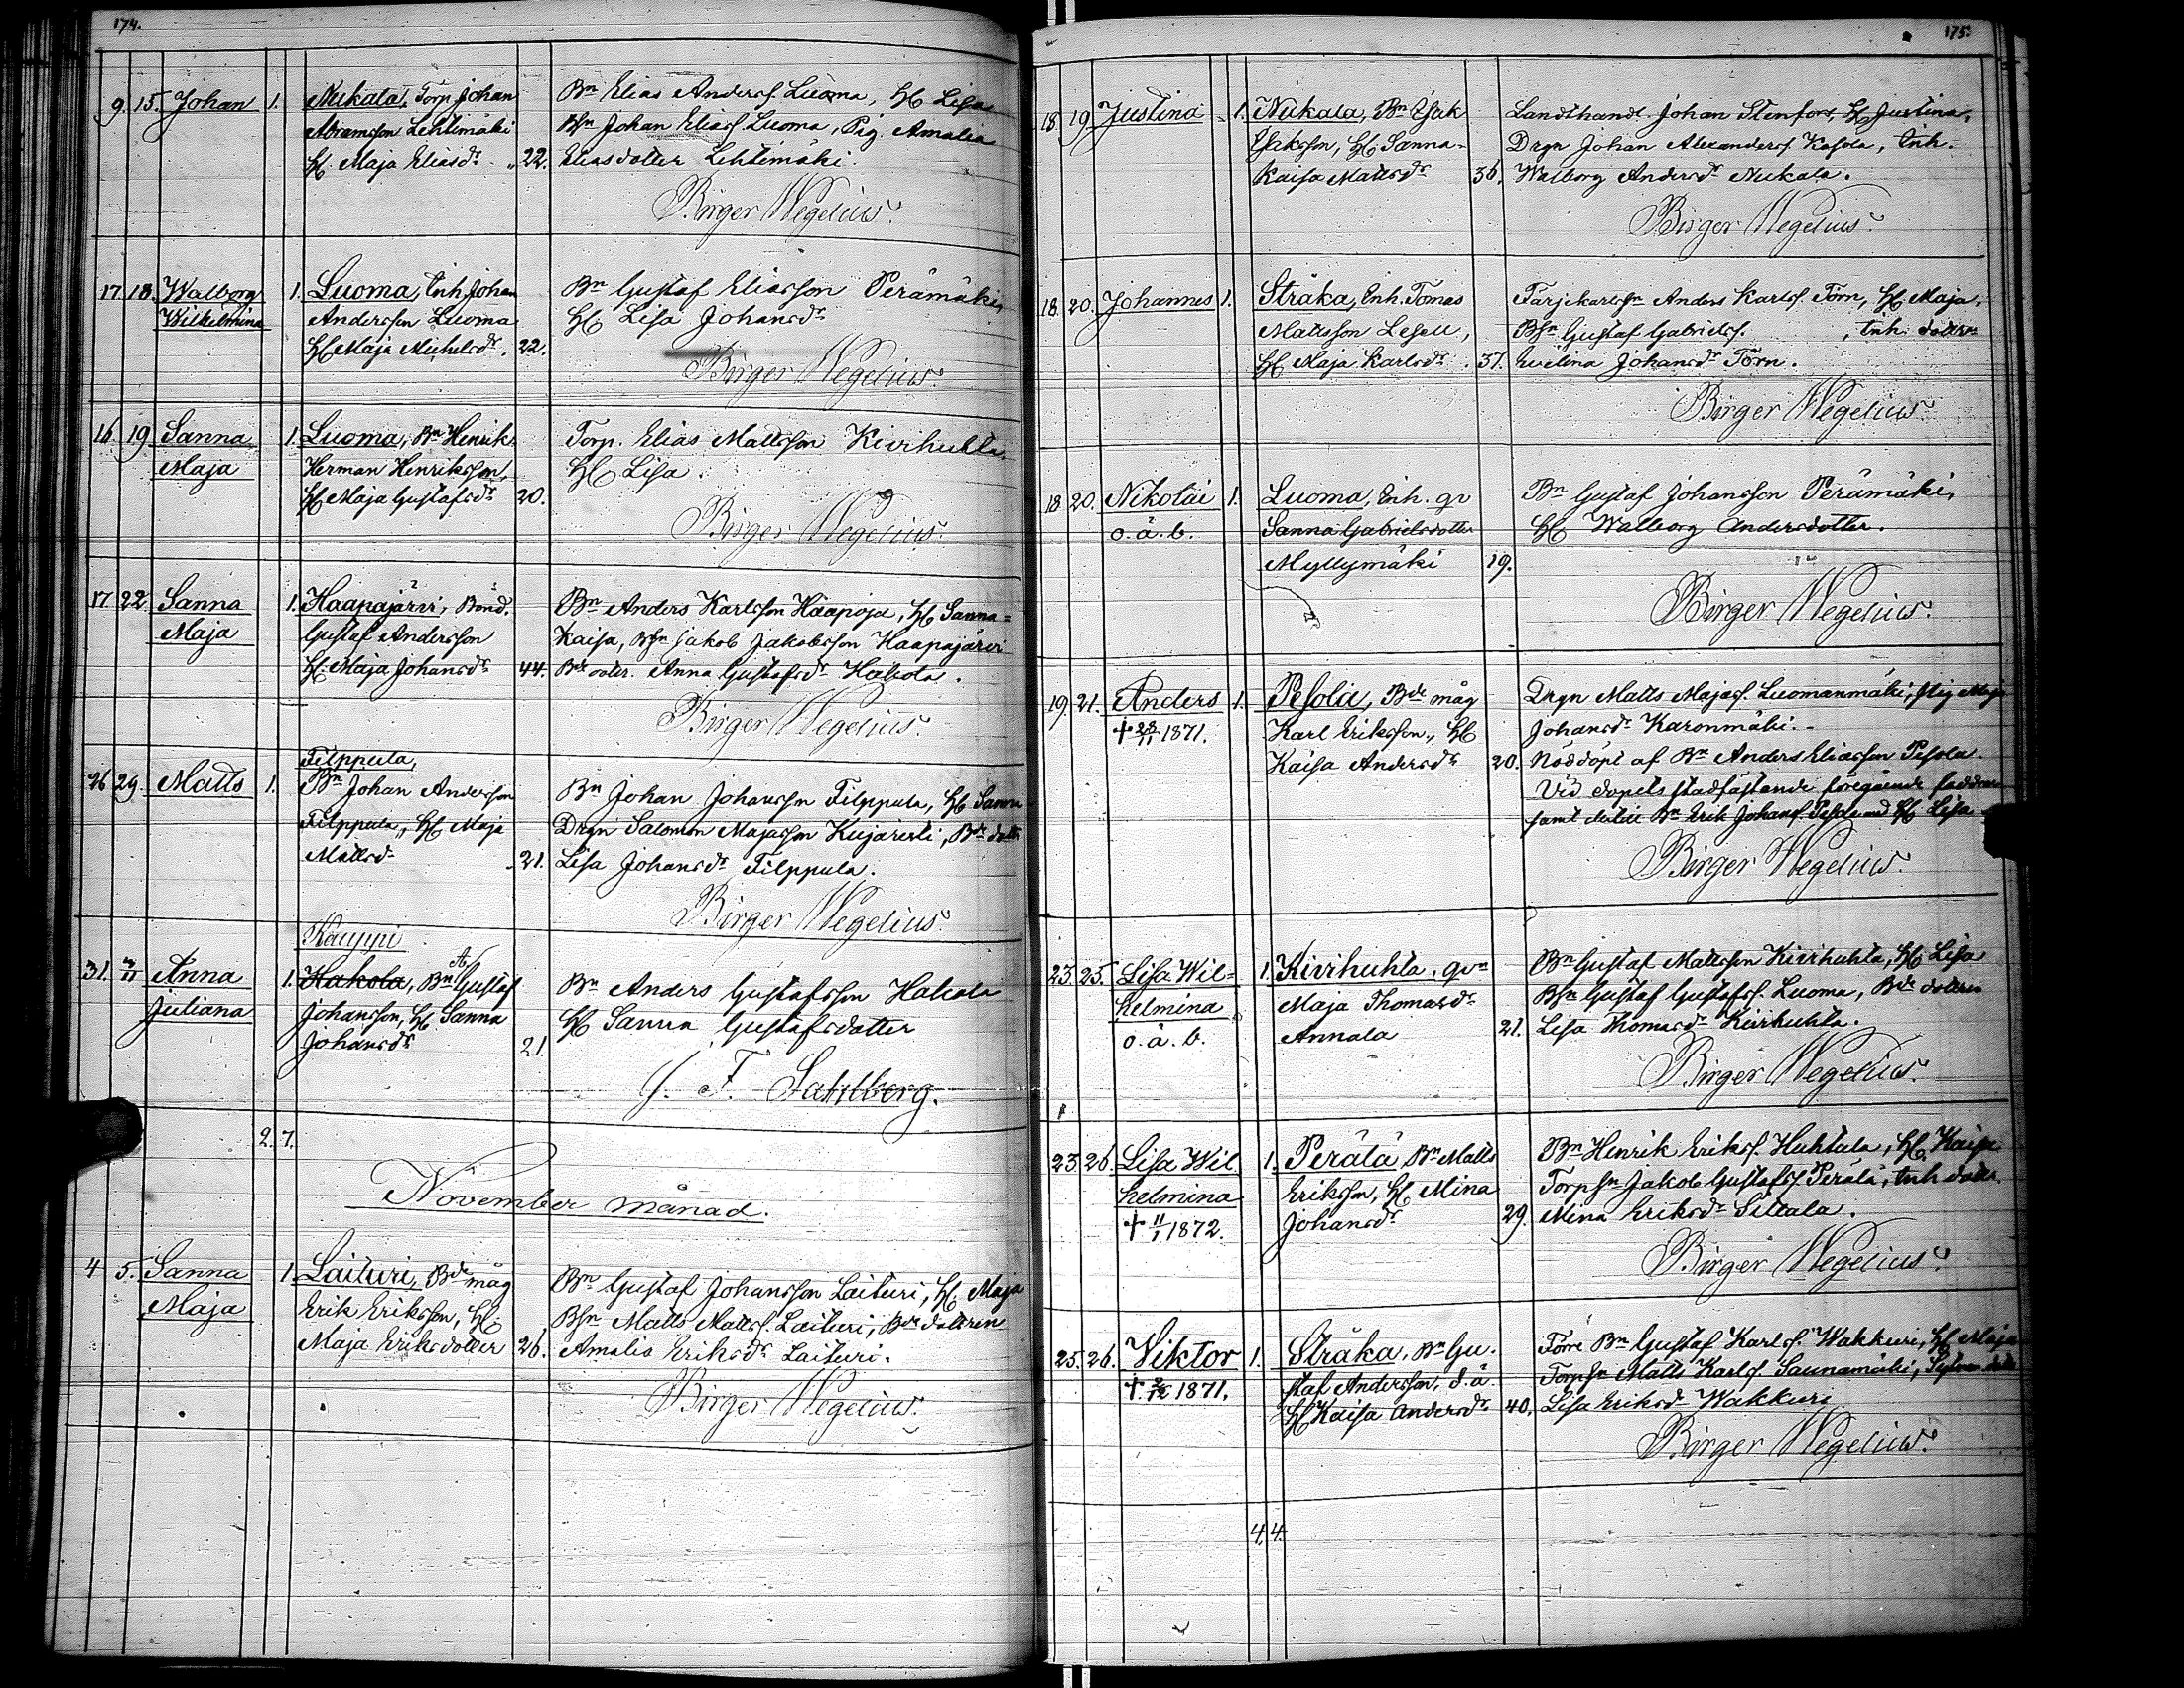 174.
9. 15. Johan 1. Nukala, Torp. Johan
Abramsson Lehtimäki
H. Maja Eliasdr 22.
Bn Elias Anders. Luoma, H. Lisa
Bsn Johan Elias. Luoma, Pig. Amalia
Eliasdotter Lehtimäki.
Birger Wegelius.
17 18. Walborg 1. Luoma, Inh. Johan
Wilhelmina Andersson Luoma
H. Maja Michelsdr. 22.
Bn Gustaf Eliasson Perämäki,
H. Lisa Johansdr
Birger Wegelius.
16 19. Sanna 1. Luoma, Bn Henrik
Maja Herman Henriksson,
H. Maja Gustafsdr 20.
Torp. Elias Mattsson Kivihuhta,
H. Lisa.
Birger Wegelius.
17 22. Sanna 1. Haapajärvi, Bond.
Maja Gustaf Andersson
H. Maja Johansdr 44.
Bn Anders Karlsson Haapoja, H. Sanna=
Kaisa, Bsn Jakob Jakobsson Haapajärvi
Bdr dotter. Anna Gustafsdr Hakola.
Birger Wegelius.
Filppula,
26 29. Matts 1. Bn Johan Andersson
Filppula, H. Maja
Mattsdr 21.
Bn Johan Johansson Filppula, H. Sanna
Drgn Salomon Majasson Kujäristi, Bdr dotter
Lisa Johansdr Filppula.
Birger Wegelius.
Kauppi
31. 3/11 Anna 1. Hakola, Bn A. Gustaf
Juliana Johansson, H. Sanna
Johansdr 21.
Bn Anders Gustafsson Hakola
H. Sanna Gustafsdotter
J. F. Sahlberg.
2. 7.
November månad.
4 5. Sanna 1. Laituri, Bde måg
Maja Erik Eriksson, H.
Maja Eriksdotter 26.
Bn Gustaf Johansson Laituri, H. Maja
Bsn Matts Matts. Laituri, Bde dottren
Amalis Eriksdr Laituri.
Birger Wegelius.
175.
18 19. Justina 1. Nukala, Bn Esak
Esaksson, H. Sanna=
Kaisa Mattsdr 36.
Landthandl. Johan Stenfors, H. Justina,
Drgn Johan Alexanders. Kasola, Inh.
Walborg Andersdr Nukala.
Birger Wegelius.
18 20. Johannes 1. Stråka, Inh. Tomas
Mattsson Lesell,
H. Maja Karlsdr 37.
Färjekarlssn Anders Karls. Törn, H. Maja.
Bsn Gustaf Gabriels. , Inh. dottren
Evelina Johansdr Törn.
Birger Wegelius.
18 20. Nikolai 1. Luoma, Inh. qv
o. ä. b. Sanna Gabrielsdotter
Myllymäki 19.
Bn Gustaf Johansson Perämäki,
H. Walborg Andersdotter.
Birger Wegelius.
19. 21. Anders 1. Pesola, Bde måg
† 28/11 1871. Karl Eriksson, H.
Kaisa Andersdr 20.
Drgn Matts Majas. Luomanmäki, Pig Maja
Johansdr Karonmäki.
Nöddöpt af Bn Anders Eliasson Pesola.
Vid dopets stadfästande föregående faddrar
samt Bn Erik Johans. Pesola med H. Lisa
Birger Wegelius.
23. 25. Lisa Wil= 1. Kivihuhta, qvn
helmina Maja Thomasdr
o. ä. b. Annala 21.
Bn Gustaf Mattsson Kivihuhta, H. Lisa
Bsn Gustaf Gustafs. Luoma, Bde dottren
Lisa Thomasdr Kivihuhta.
Birger Wegelius.
23. 26. Lisa Wil 1. Perälä, Bn Matts
helmina Eriksson, H. Mina
† 11/1 1872. Johansdr 29.
Bn Henrik Eriks. Huhtala, H. Kaisa
Torpsn Jakob Gustafs. Perälä, Inh dottr.
Mina Eriksdr Sillala.
Birger Wegelius.
25. 26. Viktor 1. Stråka, Bn Gu.
† 2/12 1871. staf Andersson, d. ä.
H. Kaisa Andersdr 40.
Förre Bn Gustaf Karls. Wakkuri, H. Maja
Torpsn Matts Karls. Saunamäki,
Lisa Eriksdr Wakkuri
Birger Wegelius.
4. 4.